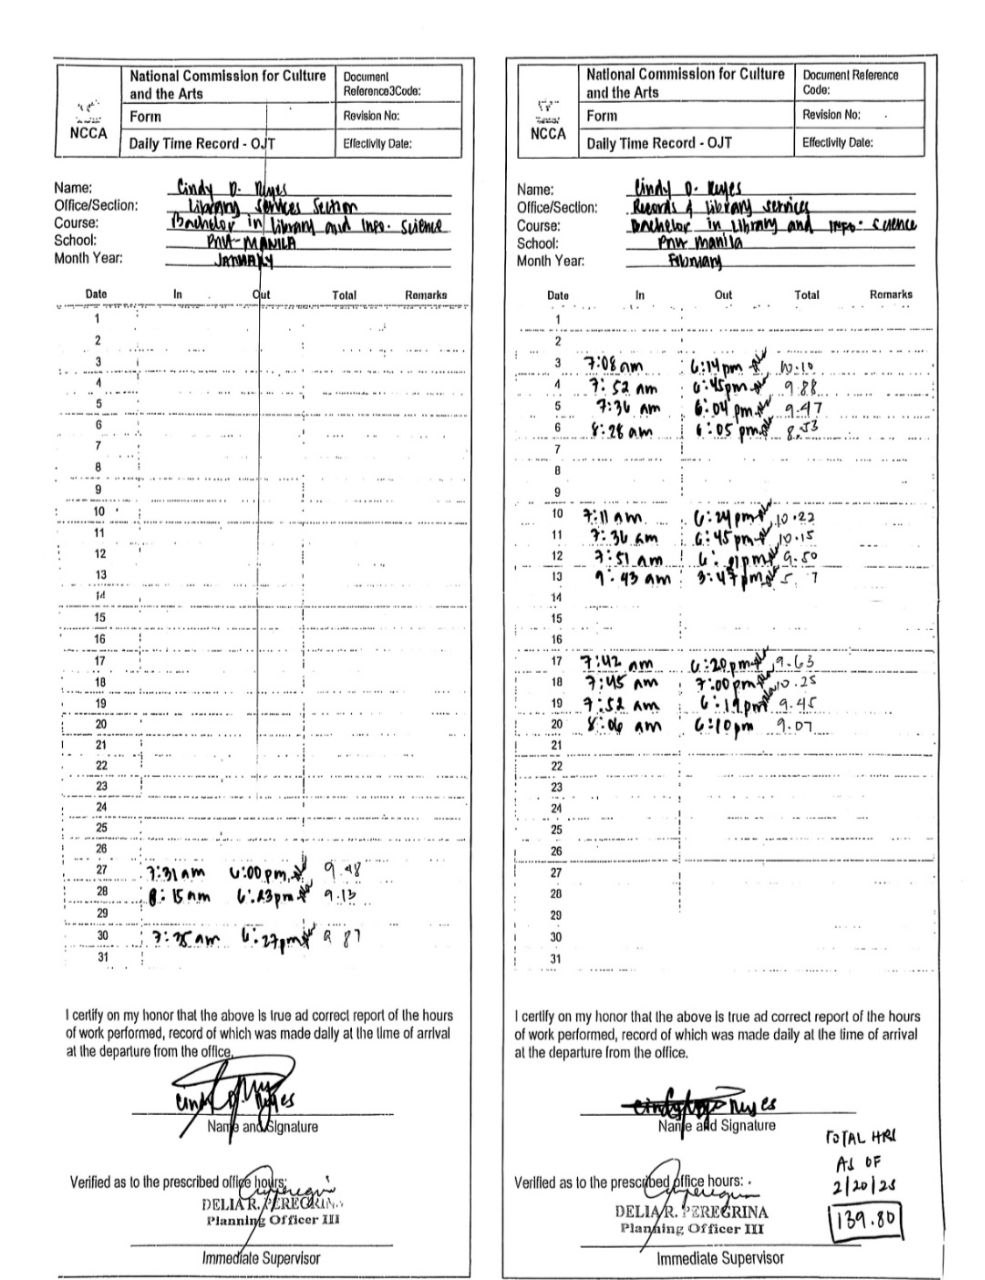 National Commission for Culture and the Arts
Document Reference3Code:
NCCA
Form
Revision No:
Daily Time Record - OJT
Effectivity Date:
Name: Cindy D. Reyes
Office/Section: Library Services Section
Course: Bachelor in Library and Info. Science
School: PNU-MANILA
Month Year: JANUARY
Date In Out Total Remarks
1
2
3
4
5
6
7
8
9
10
11
12
13
14
15
16
17
18
19
20
21
22
23
24
25
26
27 7:31 am 6:00 pm 9.48
28 8:15 am 6:23 pm 9.13
29
30 6:27 pm 9 87
31
I certify on my honor that the above is true ad correct report of the hours
of work performed, record of which was made daily at the time of arrival
at the departure from the office.
Cindy Reyes
Name and Signature
Verified as to the prescribed office hours:
DELIA R. PEREGRINA
Planning Officer III
Immediate Supervisor
National Commission for Culture and the Arts
Document Reference Code:
NCCA
Form
Revision No:
Daily Time Record - OJT
Effectivity Date:
Name: Cindy D. Reyes
Office/Section: Records & library services
Course: Bachelor in Library and Info. Science
School: PNU Manila
Month Year: February
Date In Out Total Remarks
1
2
3 7:08 am 6:14 pm 10.10
4 7:52 am 6:45 pm 9.88
5 7:36 am 6:04 pm 9.47
6 8:28 am 6:05 pm 8.53
7
8
9
10 7:11 am 6:24 pm 10.22
11 7:36 am 6:45 pm 10.15
12 7:51 am 9.50
13 9:43 am 3:47 pm 5. 7
14
15
16
17 7:42 am 6:20 pm 9.63
18 7:45 am 7:00 pm 10.25
19 7:52 am 6:19 pm 9.45
20 8:06 am 6:10 pm 9.07
21
22
23
24
25
26
27
28
29
30
31
I certify on my honor that the above is true ad correct report of the hours
of work performed, record of which was made daily at the time of arrival
at the departure from the office.
Cindy Reyes
Name and Signature
Verified as to the prescribed office hours:
DELIA R. PEREGRINA
Planning Officer III
Immediate Supervisor
TOTAL HRS
AS OF
2/20/25
139.80